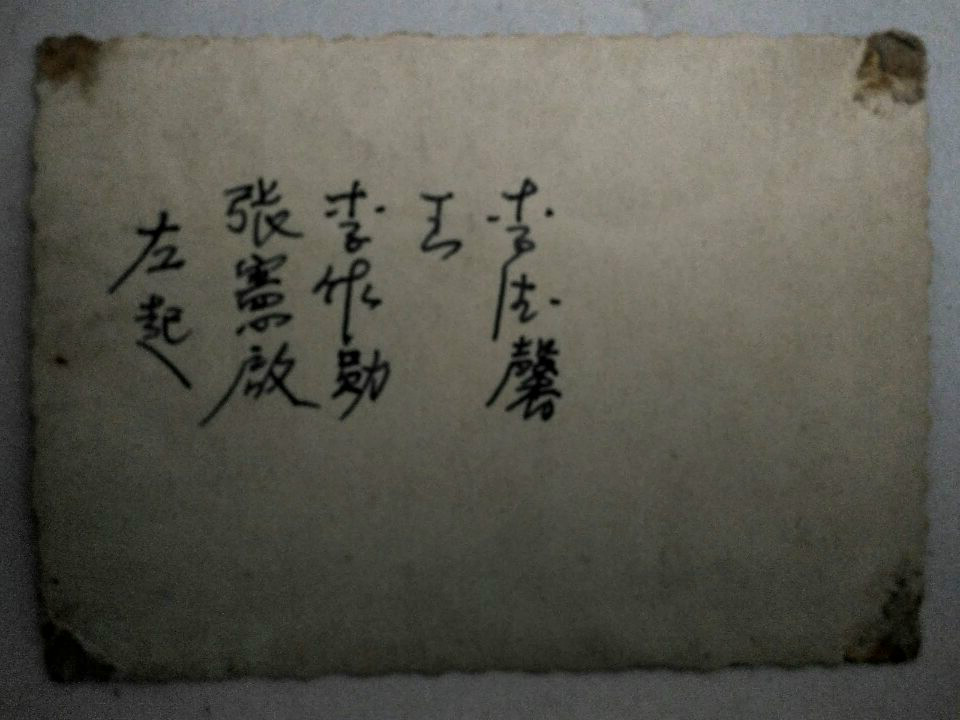 左起
張憲啟
李作勛
王
李馨